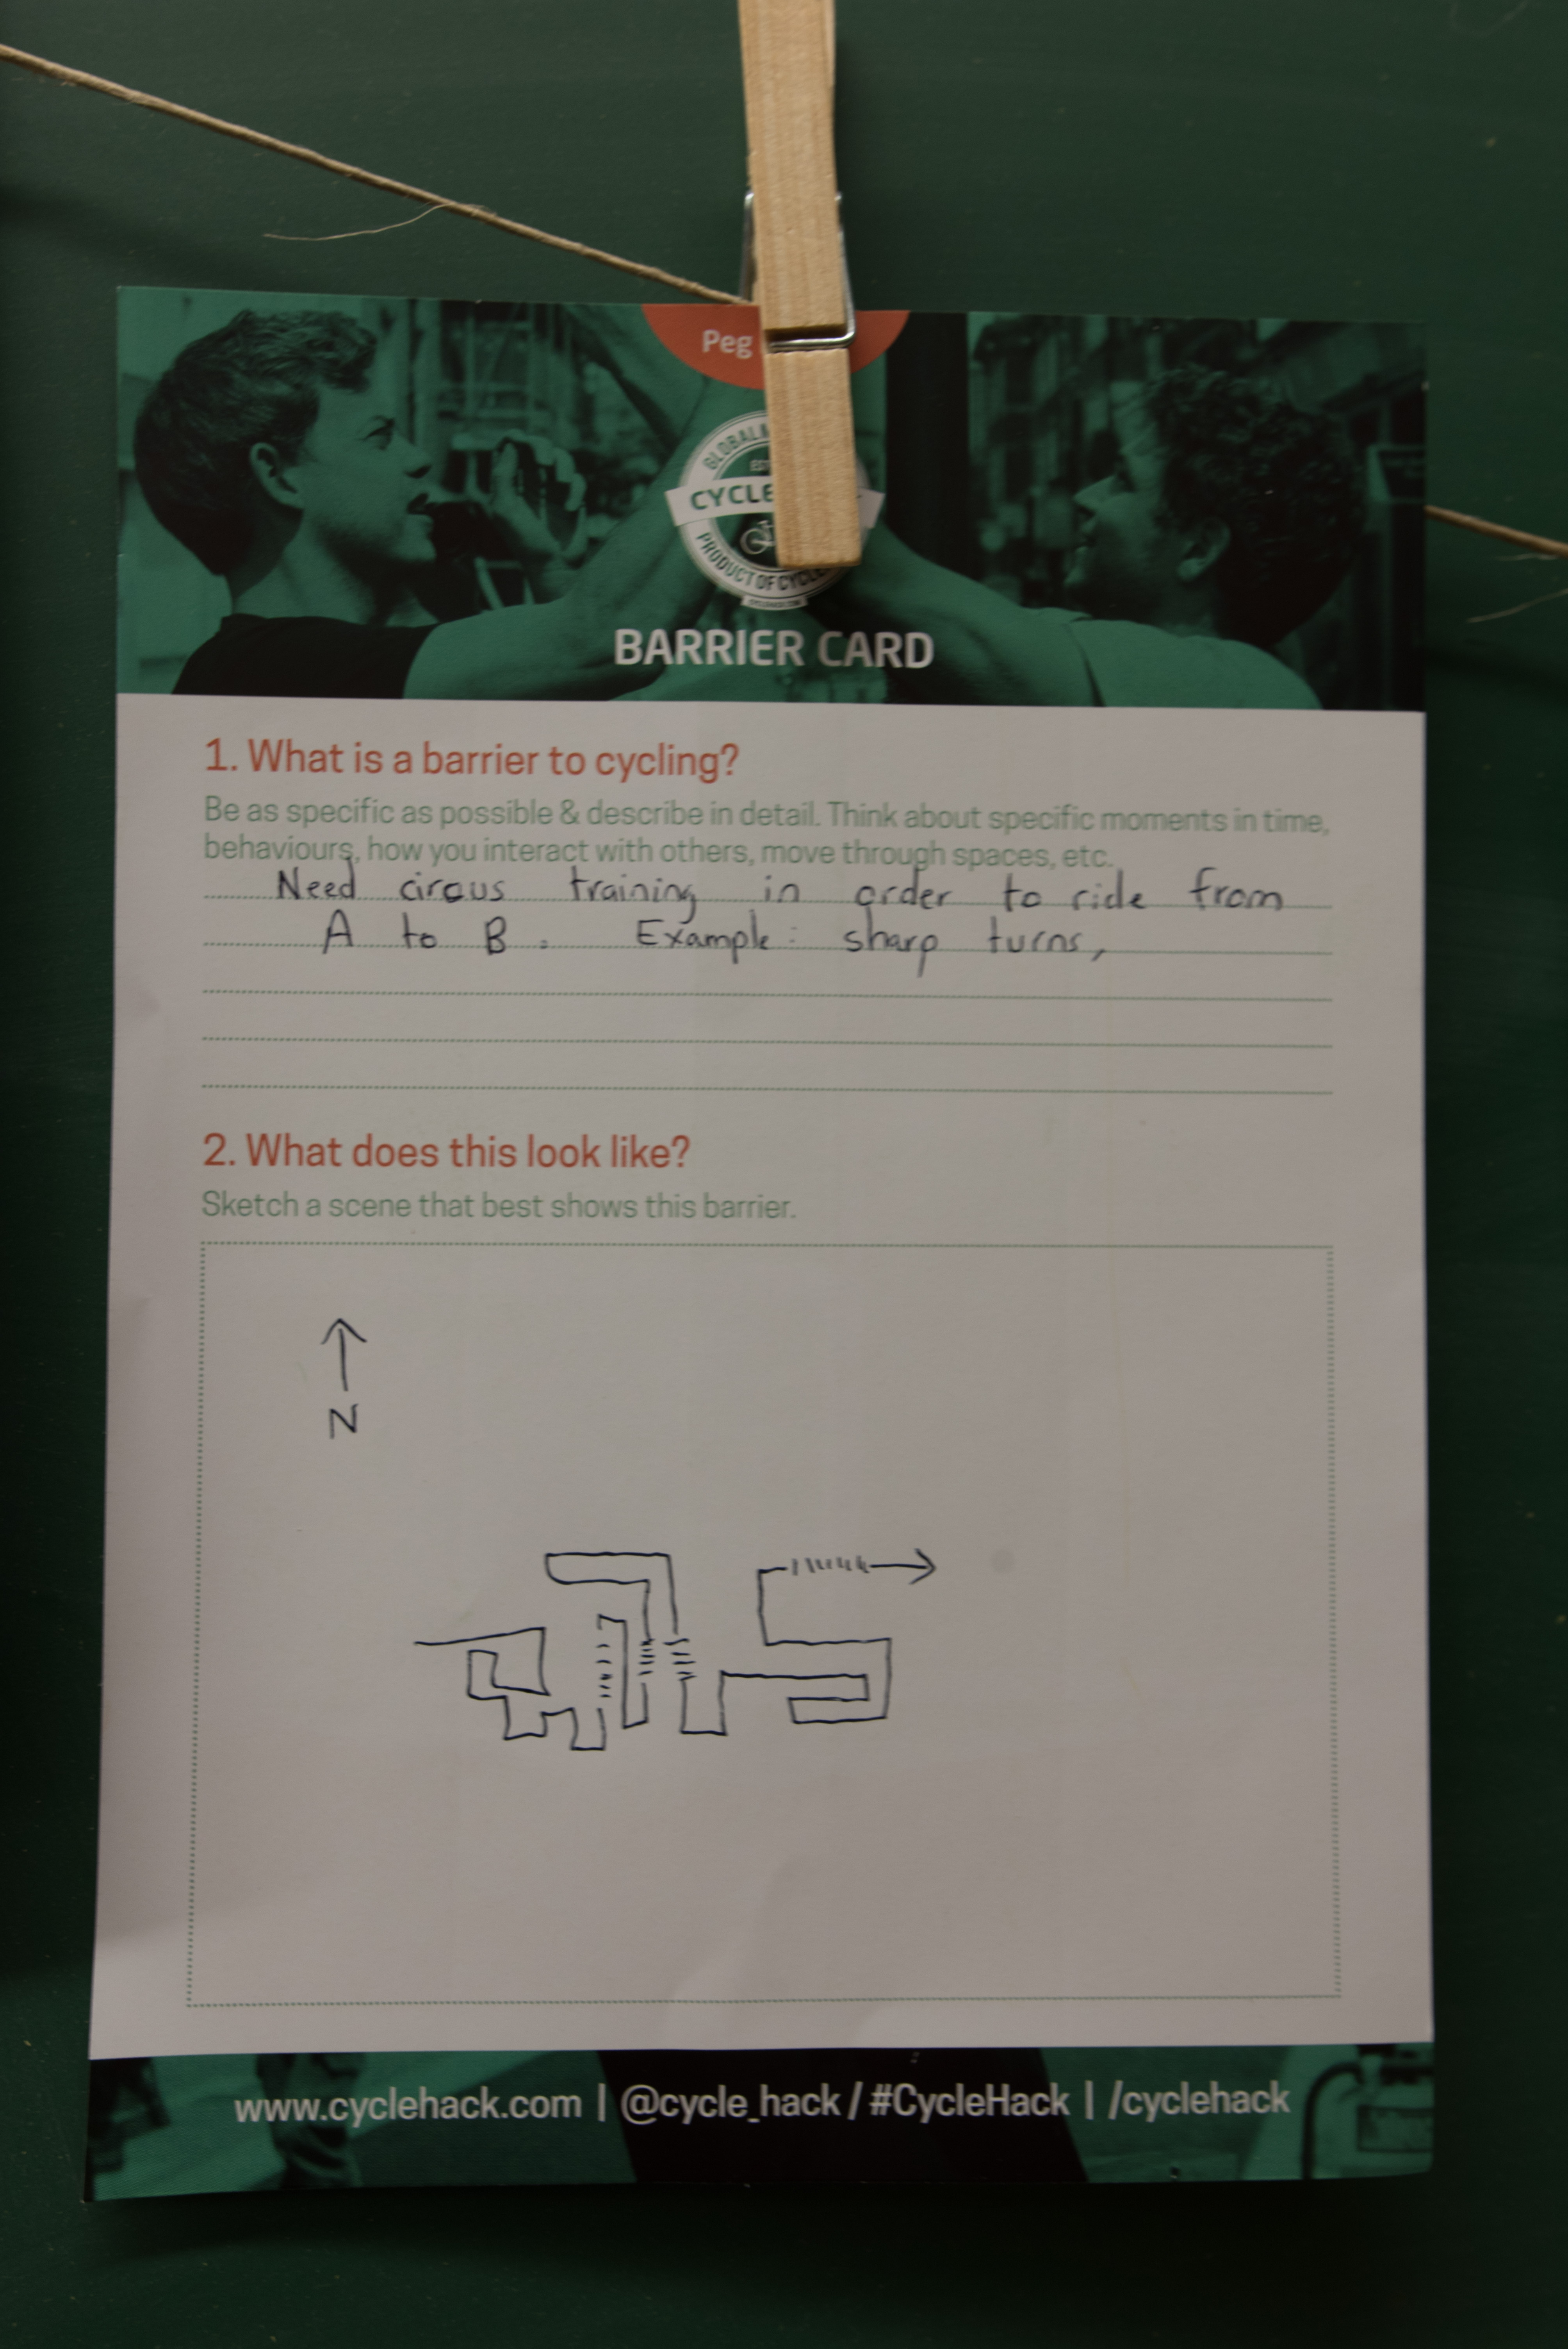 Peg
GLOBAL
CYCLE
PRODUCT OF
BARRIER CARD
1. What is a barrier to cycling?
Be as specific as possible & describe in detail. Think about specific moments in time,
behaviours, how you interact with others, move through spaces, etc.
Need circus training in order to ride from
A to B. Example: sharp turns,
2. What does this look like?
Sketch a scene that best shows this barrier.
N
www.cyclehack.com | @cycle_hack / #CycleHack | /cyclehack